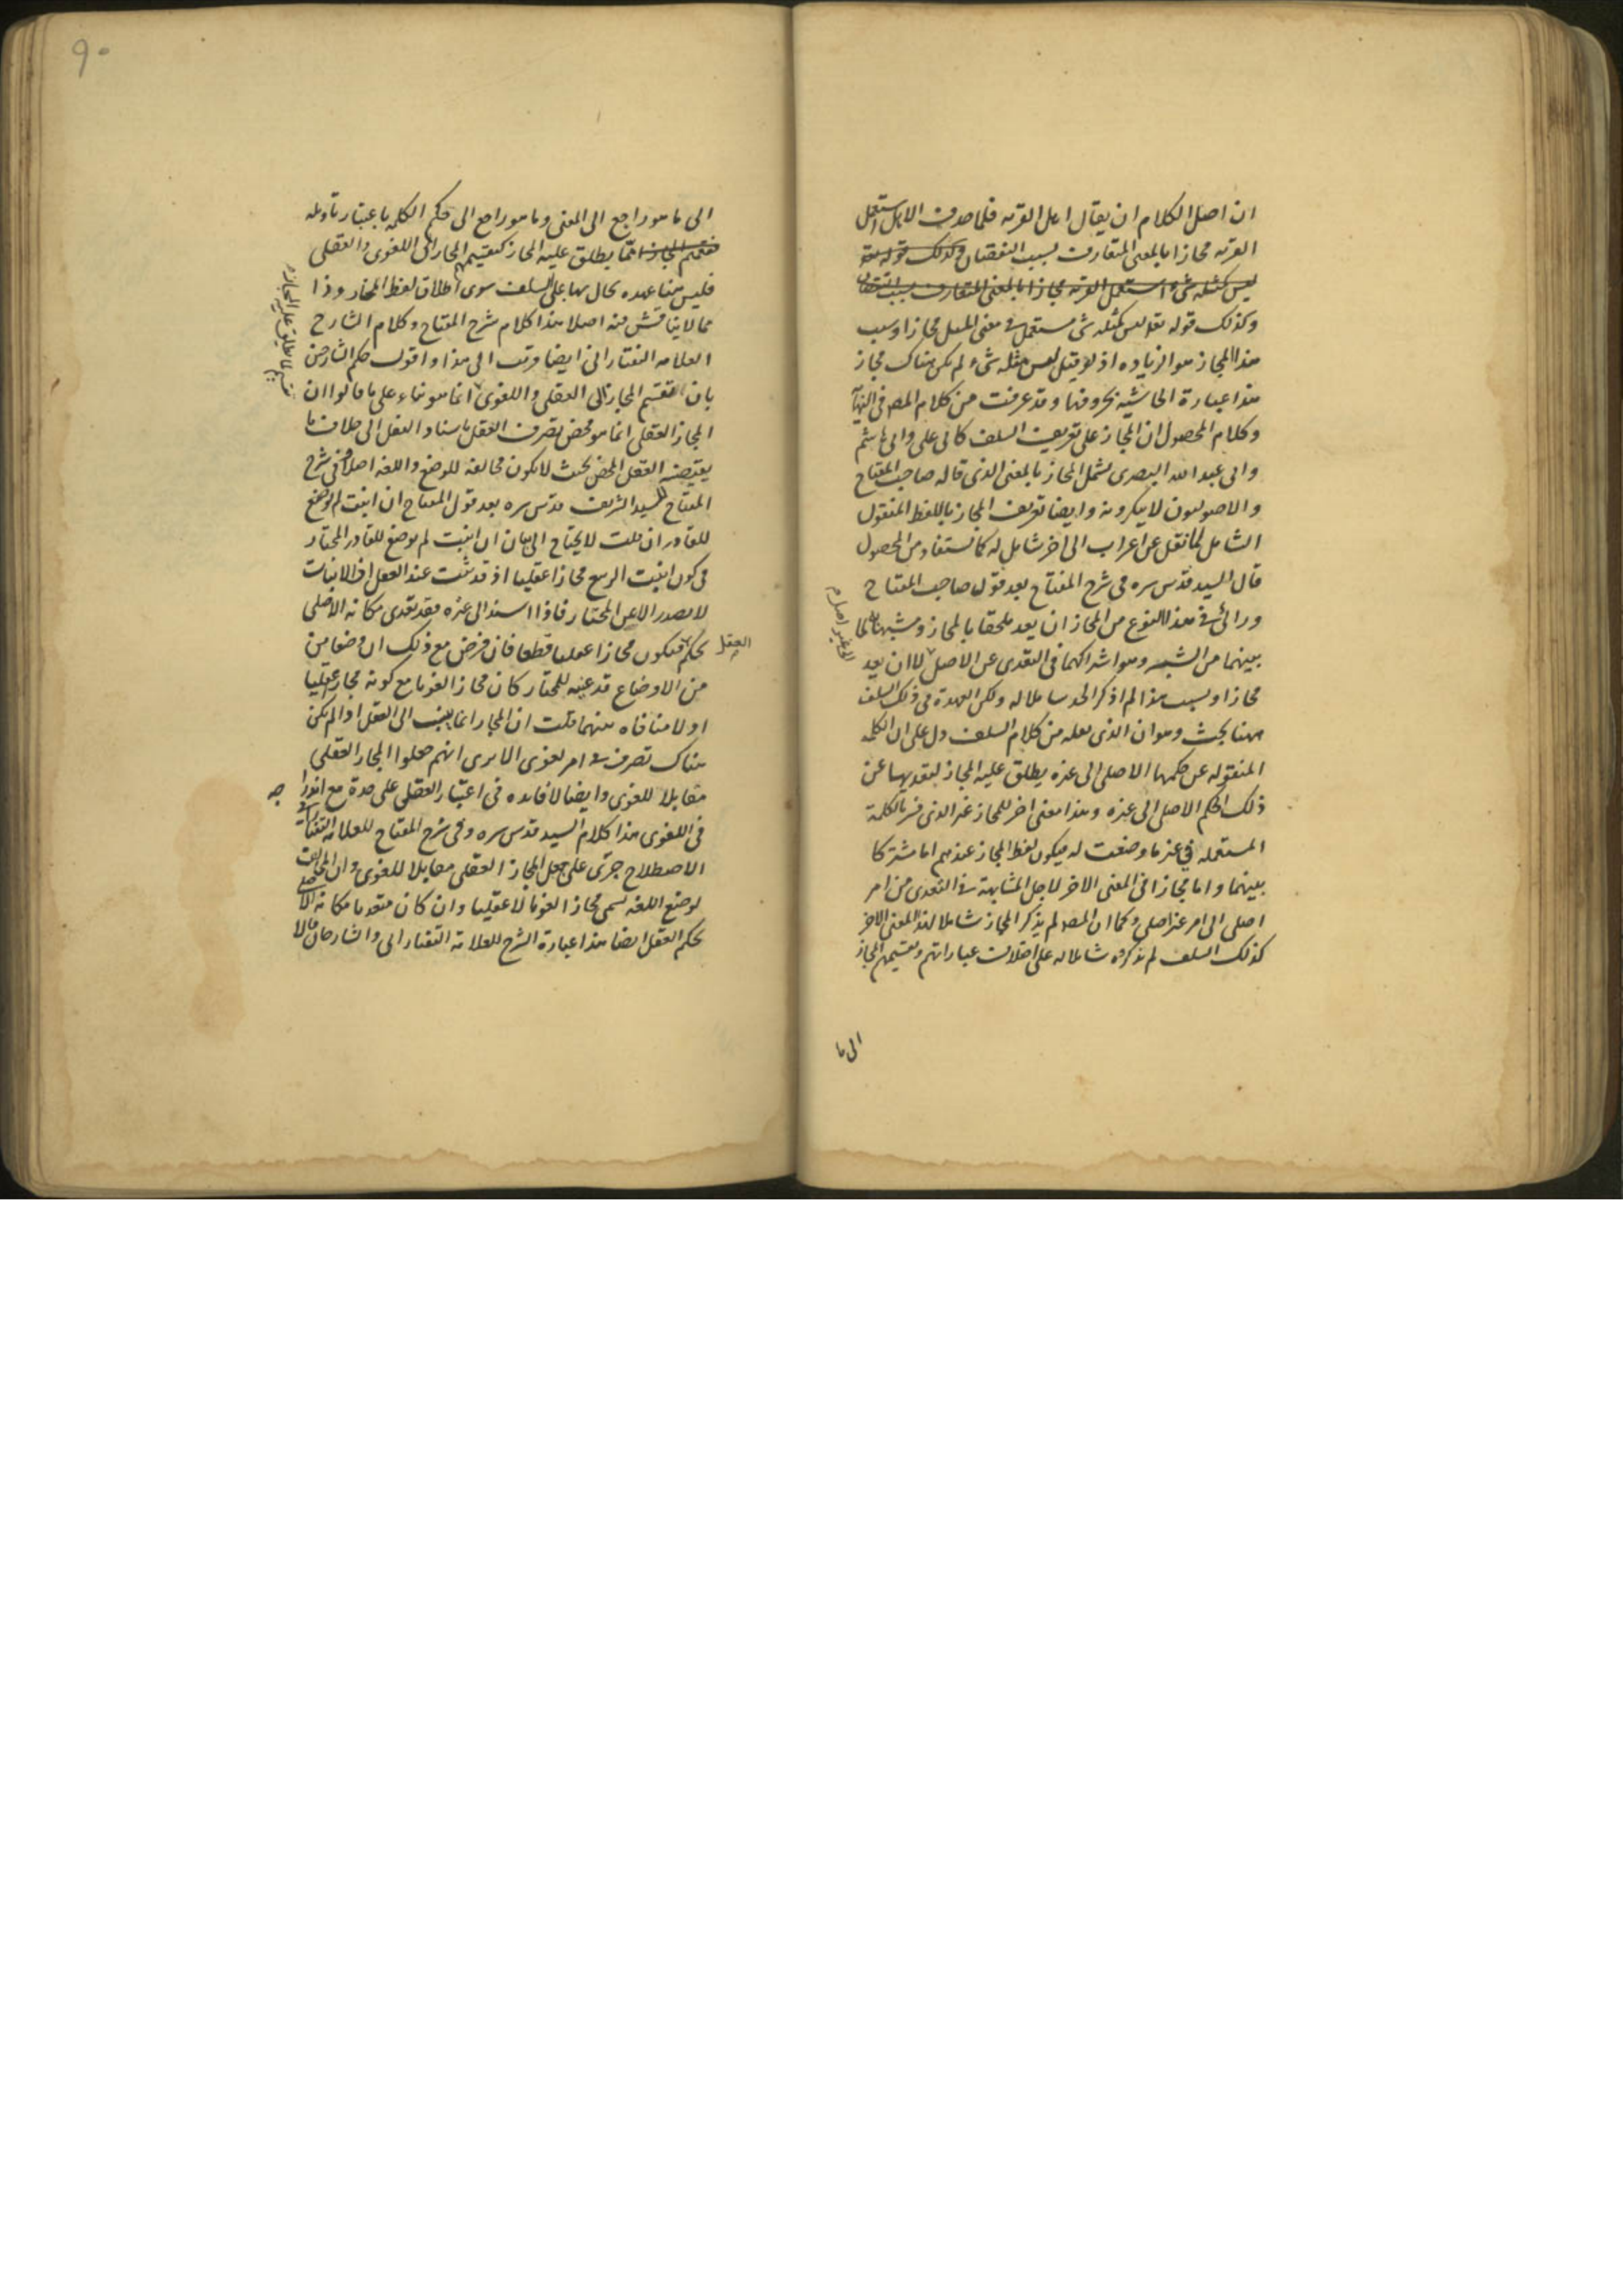 ان اصل الكلام ان يقال اهل القريه فلما حذف الاهل استعمل
القريه مجازا بالمعنى المتعارف بسبب النقصان وكذلك قوله تعه
ليس كمثله شئ استعمل القريه مجازا بالمعنى المتعارف بسبب النقصان
وكذلك قوله تعالى ليس كمثله شئ مستعمل في معنى المثل مجازا وسبب
هذا المجاز هو الزياده اذ لو قيل ليس مثله شئ لم يكن هناك مجاز
هذا عبارة الحاشيه بحروفها وقد عرفت من كلام المصـ في النهاية
وكلام المحصول ان المجاز على تعريف السلف كابي علي وابي هاشم
وابي عبد الله البصرى يشمل المجاز بالمعنى الذى قاله صاحب المفتاح
والاصوليون لا ينكرونه وايضا تعريف المجاز باللفظ المنقول
الشامل لما نقل عن اعراب الى اخر شامل له كما يستفاد من المحصول
قال السيد قدس سره في شرح المفتاح بعد قول صاحب المفتاح
ورائى في هذا النوع من المجاز ان يعد ملحقا بالمجاز ومشبها به لما
بينهما من الشبه وهو اشتراكهما في التعدى عن الاصل لا ان يعد
الى غير اصل م
مجازا وبسبب هذا لم اذكر الحد شاملا له ولكن العهدة في ذلك السلف
ههنا بحث وهو ان الذى نقله من كلام السلف دل على ان الكلمه
المنقوله عن حكمها الاصلى الى غيره يطلق عليه المجاز لتعديها عن
ذلك الحكم الاصلى الى غيره وهذا معنى اخر للمجاز غير الذى فسر بالكلمة
المستعمله في غير ما وضعت له فيكون لفظ المجاز عندهم اما مشتركا
بينهما واما مجازا في المعنى الاخر لاجل المشابهة في التعدى من امر
اصلى الى امر غير اصلى وكما ان المصـ لم يذكر المجاز شاملا لهذا المعنى الاخر
كذلك السلف لم يذكروه شاملا له على اختلاف عباراتهم وتقسيمهم المجاز
الى ما
٩٠
الى ما هو راجع الى المعنى وما هو راجع الى حكم الكلمه باعتبار تاويله
فتقسيم المجاز انما يطلق عليه المجاز كتقسيمهم المجاز الى اللغوى والعقلى
تقسيم لما يطلق عليه المجاز م
فليس هنا عهده يحال بها على السلف سوى اطلاق لفظ المجاز وذا
مما لا يناقش فيه اصلا هذا كلام شرح المفتاح وكلام الشارح
العلامه التفتازانى ايضا قريب الى هذا واقول حكم الشارحين
بان تقسيم المجاز الى العقلى واللغوى انما هو بناء على ما قالوا ان
المجاز العقلى انما هو محض تصرف العقل باسناد الفعل الى خلاف ما
يقتضيه العقل المحض بحيث لا يكون مخالفة للوضع واللغه اصلا وفي شرح
المفتاح للسيد الشريف قدس سره بعد قول المفتاح ان انبت لم يوضع
للقادر ان قلت لا يحتاج الى بيان ان انبت لم يوضع للقادر المختار
في كون انبت الربيع مجازا عقليا اذ قد ثبت عند العقل ان الانبات
لا يصدر الا عن المختار فاذا اسند الى غيره فقد تعدى مكانه الاصلى
بحكم العقل فيكون مجازا عقليا قطعا فان فرض مع ذلك ان وضعا من
من الاوضاع قد عينه للمختار كان مجازا لغويا مع كونه مجازا عقليا
اولا منافاه بينهما قلت ان المجاز انما ينسب الى العقل اذا لم يكن
هناك تصرف في امر لغوى الا يرى انهم جعلوا المجاز العقلى
مقابلا للغوى وايضا لا فايده في اعتبار العقلى على حدة مع اندراجه
في اللغوى هذا كلام السيد قدس سره وفي شرح المفتاح للعلامه التفتازانى
الاصطلاح جرى على جعل المجاز العقلى مقابلا للغوى وان المخالفت
لوضع اللغه يسمى مجازا لغويا لا عقليا وان كان متعديا مكانه الاصلى
بحكم العقل ايضا هذا عبارة الشرح للعلامة التفتازانى والشارحان قالا